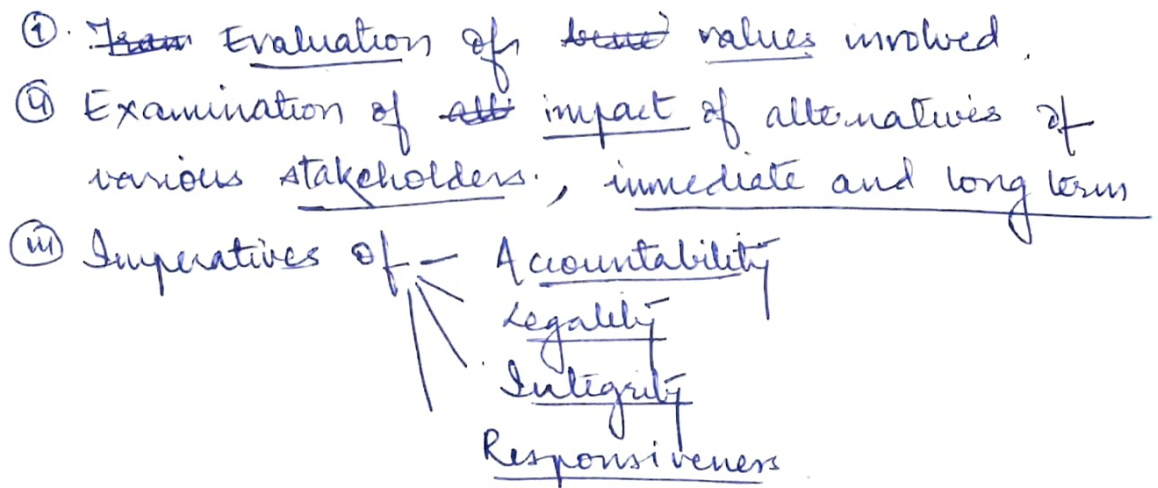 (i). Evaluation of values involved.
(ii) Examination of impact of alternatives of
various stakeholders., immediate and long term
(iii) Imperatives of - Accountability
Legality
Integrity
Responsiveness